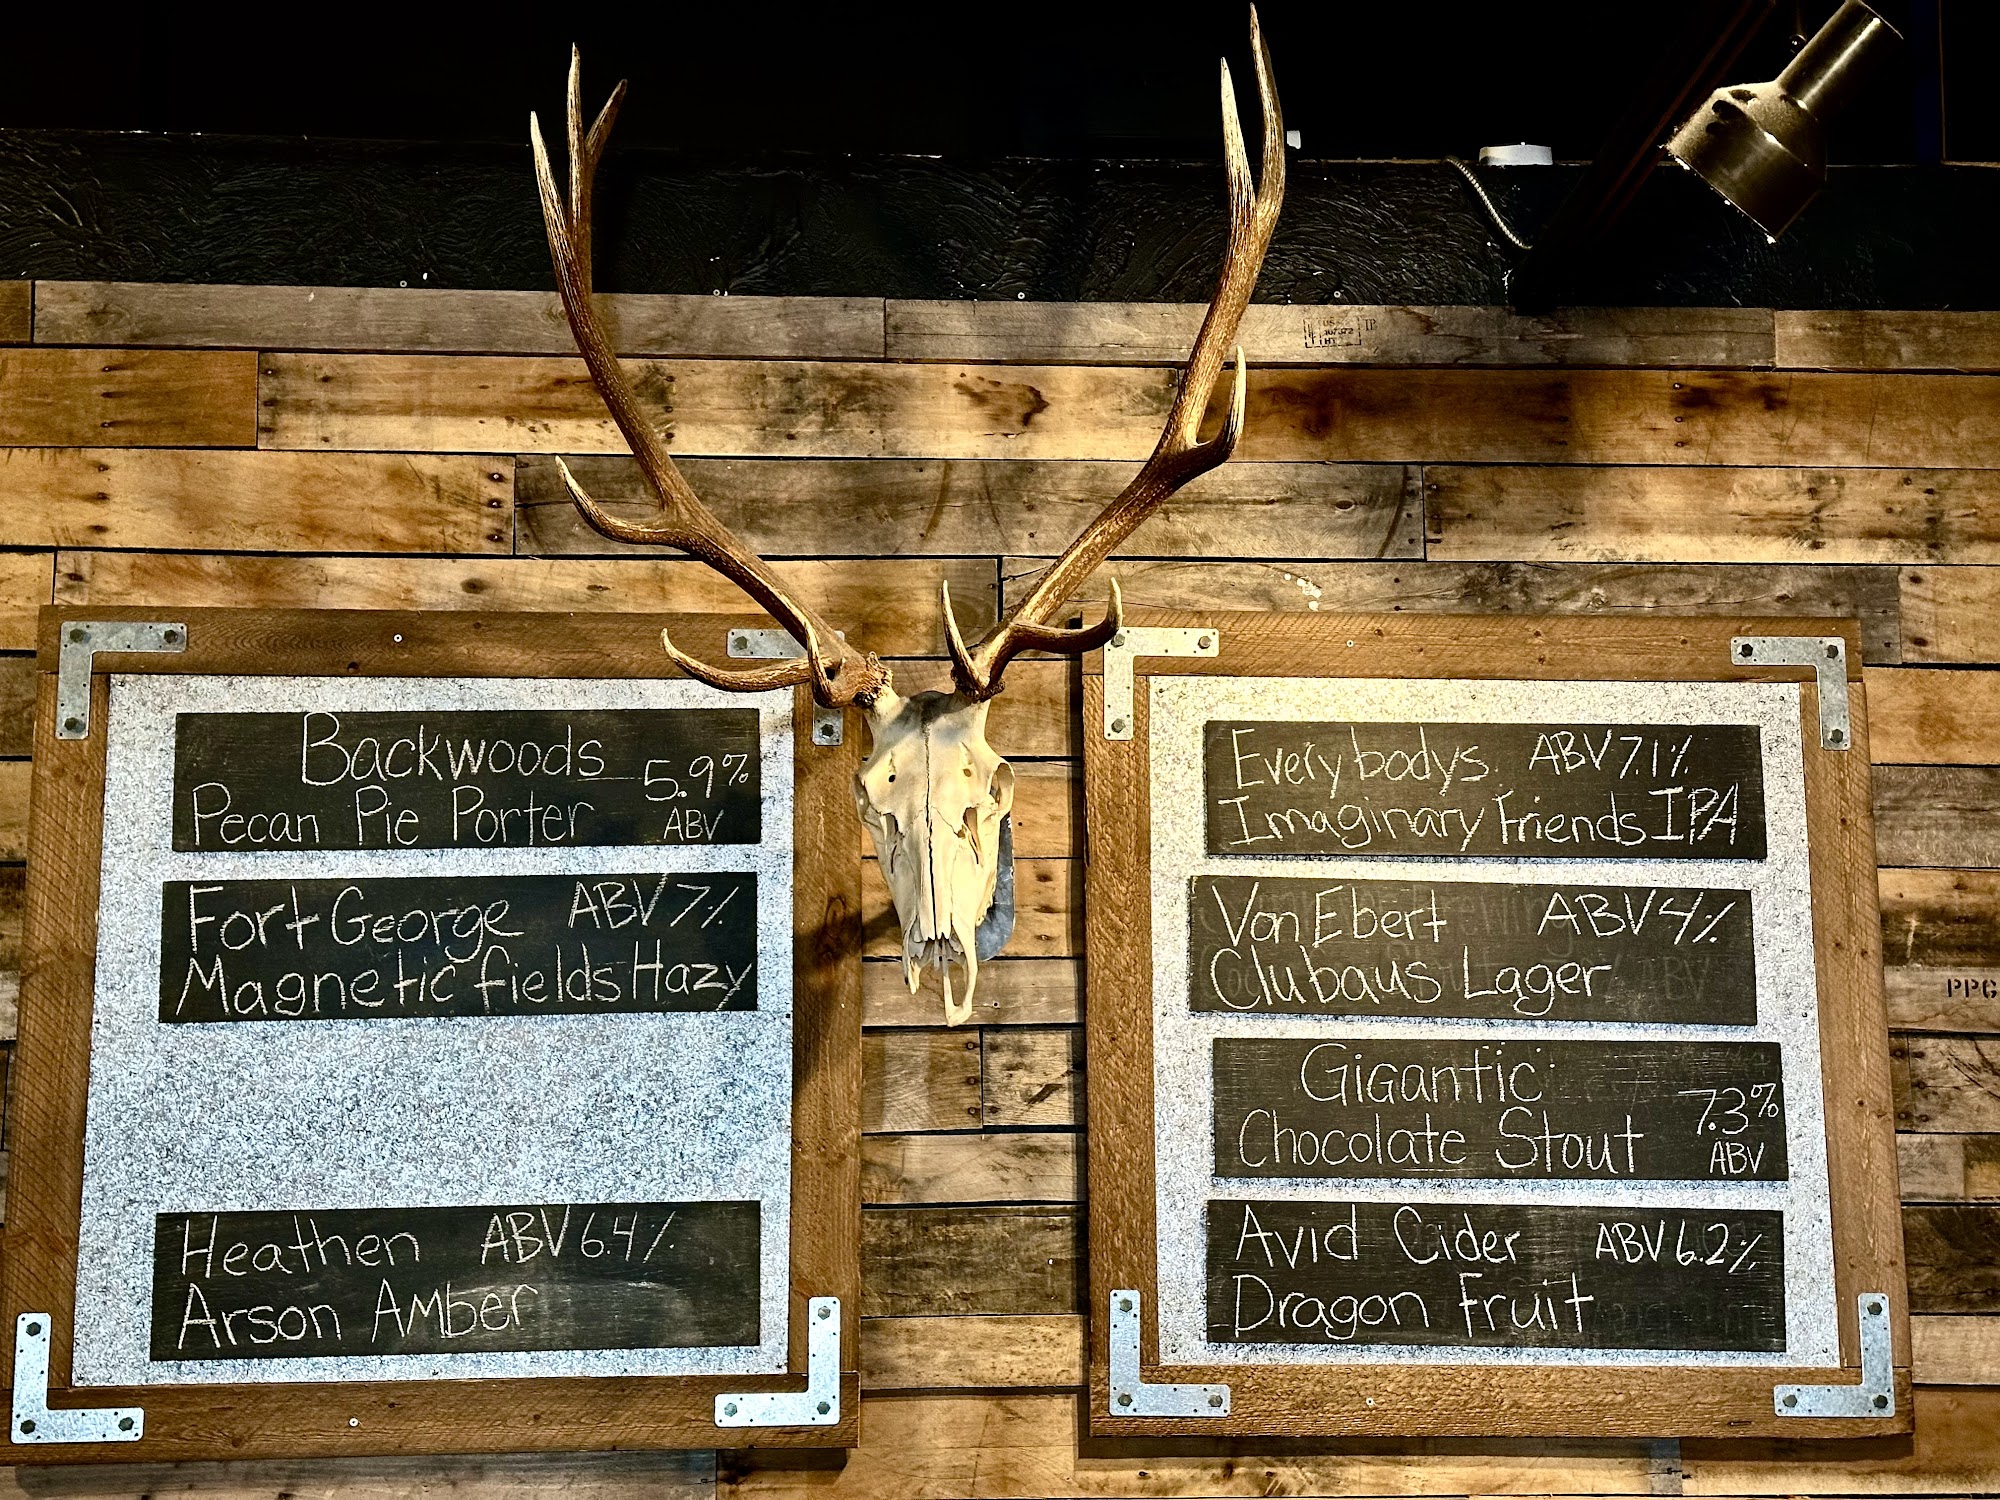 Backwoods
Pecan Pie Porter
5.9%
ABV
Fort George ABV 7%
Magnetic fields Hazy
Heathen ABV 6.4%
Arson Amber
Everybodys. ABV 7.1%
Imaginary Friends IPA
Von Ebert ABV 4%
Clubaus Lager
Gigantic
Chocolate Stout
7.3%
ABV
Avid Cider ABV 6.2%
Dragon Fruit
PPC